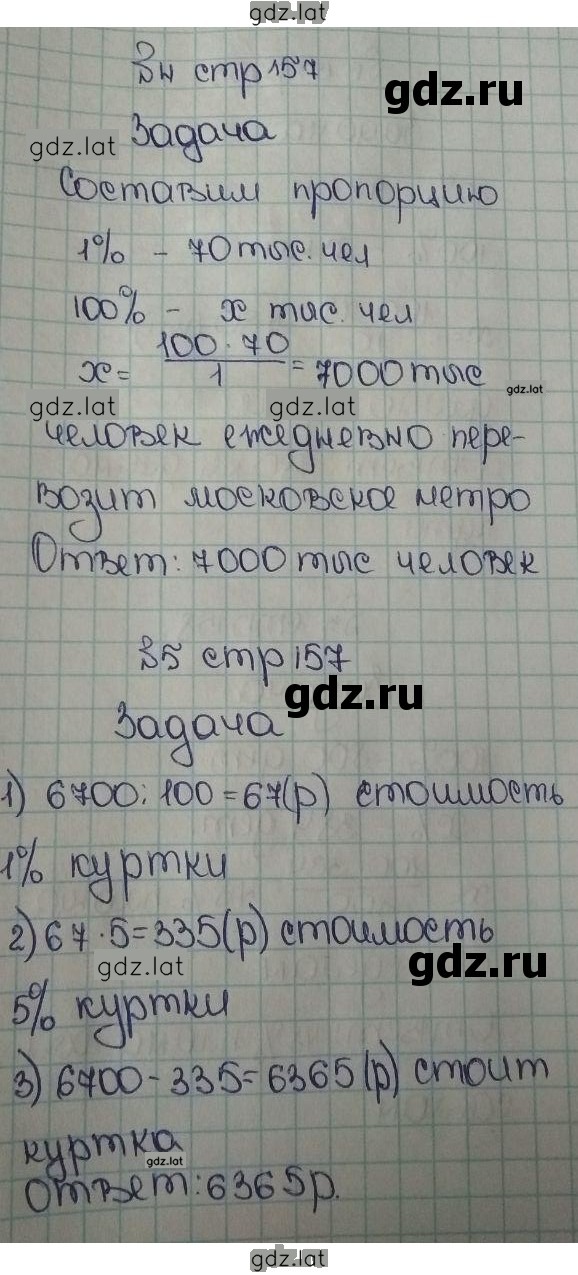 gdz.lat
З4 стр 157
gdz.ru
gdz.lat
Задача
Составим пропорцию
1% - 70 тыс. чел
100% - x тыс. чел
x = 100 · 70 / 1 = 7000 тыс
gdz.lat
gdz.lat gdz.lat
человек ежедневно пере-
возит московское метро
Ответ: 7000 тыс человек
З5 стр 157
gdz.ru
Задача
1) 6700 : 100 = 67(р) стоимость
1% куртки
2) 67 · 5 = 335(р) стоимость
gdz.lat gdz.ru
5% куртки
3) 6700 - 335 = 6365 (р) стоит
куртка
gdz.lat
Ответ: 6365 р.
gdz.lat